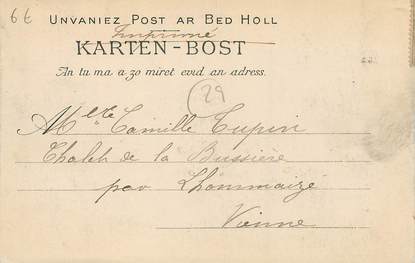 6€
UNVANIEZ POST AR BED HOLL
Imprimé
KARTEN-BOST
An tu ma a zo miret evid an adress.
29
Mlle Camille Cupin
Chalet de la Bussière
par Lhommaizé
Vienne